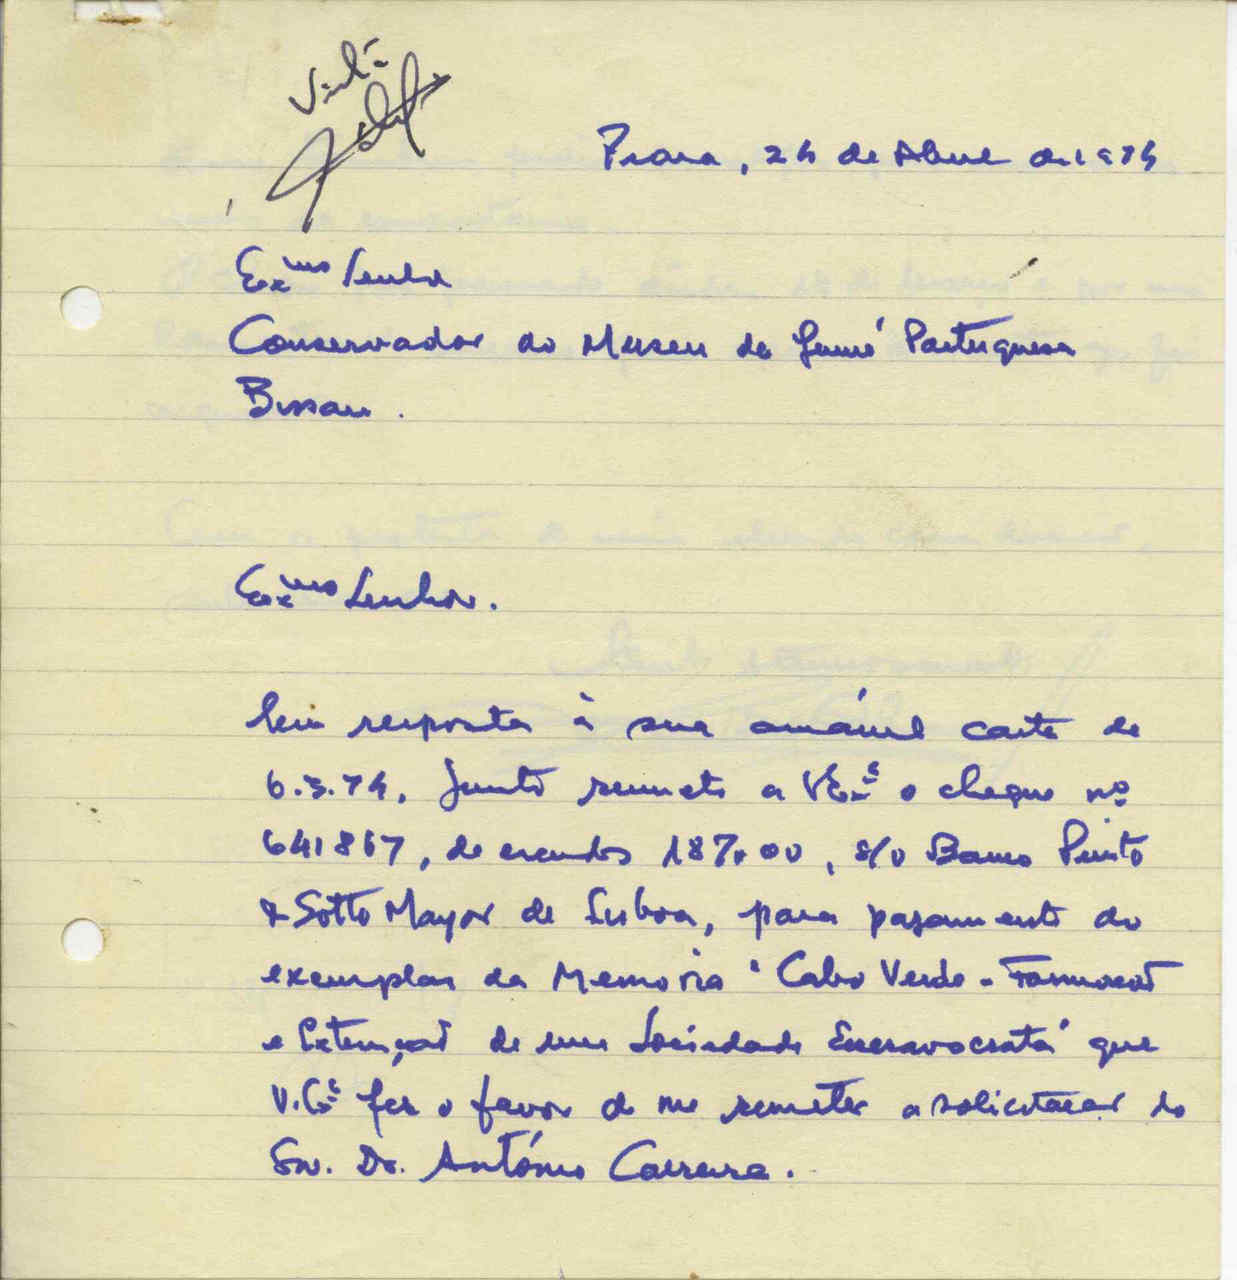 Visto
Praia, 24 de Abril de 1974
Exmo Senhor
Conservador do Museu da Guiné Portuguesa
Bissau.
Exmo Senhor.
Em resposta à sua amável carta de
6.3.74, junto remeto a V.Exª o cheque nº
641867, de escudos 187$00, s/o Banco Pinto
& Sotto Mayor de Lisboa, para pagamento do
exemplar da Memoria "Cabo Verde - Formação
e Extenção de uma Sociedade Escravocrata" que
V.Exª fez o favor de me remeter a solicitação do
Snr. Dr. António Carreira.